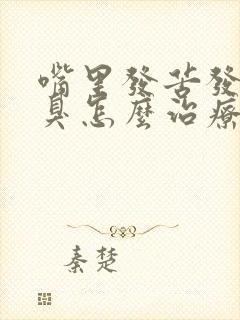 嘴里發苦發
臭怎麼治療
秦楚